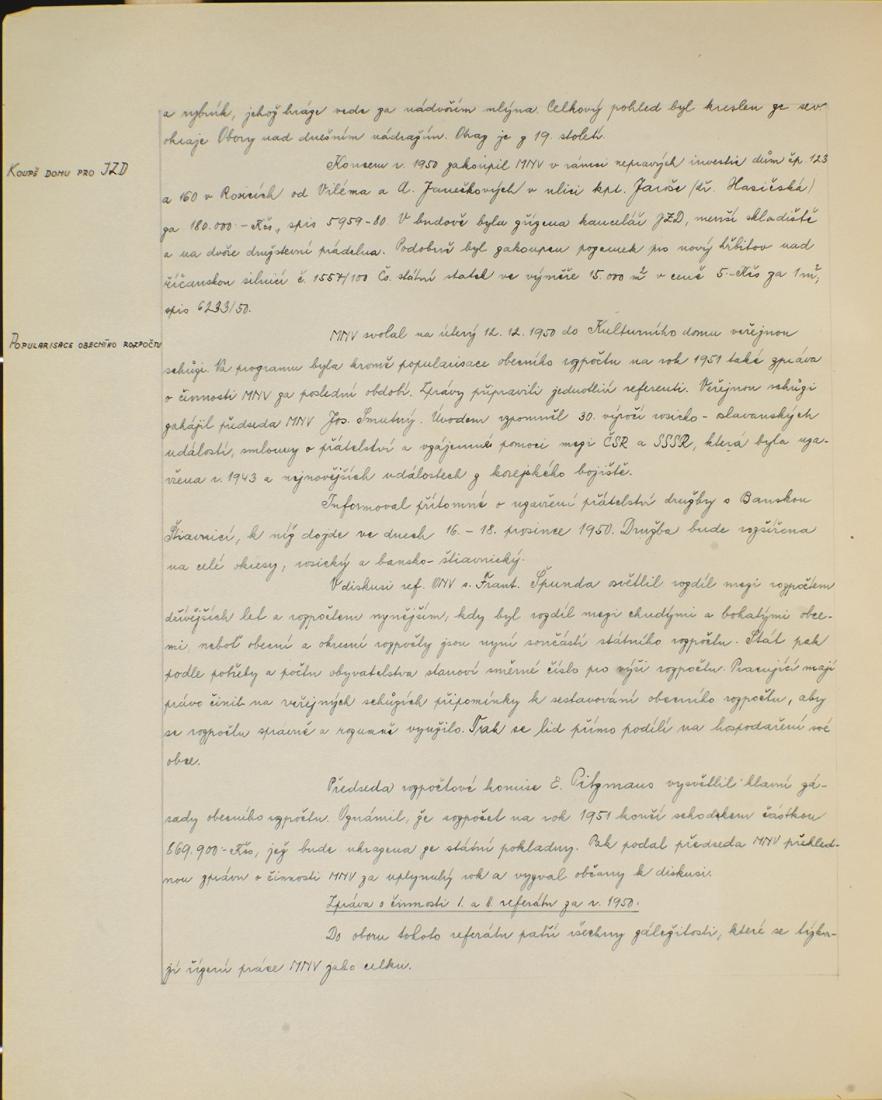 a rybník, jehož hráze vede za nádvořím mlýna. Celkový pohled byl kreslen ze sev
okraje Obory nad dnešním nádražím. Obraz je z 19. století.
KOUPĚ DOMU PRO JZD
Koncem r. 1950 zakoupil MNV v rámci nepravých investic dům čp. 123
a 160 v Rosicích od Viléma a A. Janeškových v ulici kpt. Jaroše /dř. Hasičská/
za 180.000.- Kčs, spis 5959-80. V budově byla zřízena kancelář JZD, menší skladiště
a na dvoře družstevní prádelna. Podobně byl zakoupen pozemek pro nový hřbitov nad
říčanskou silnicí č. 1557/100 Čs. státní statek ve výměře 15.000 m² v ceně 5.-Kčs za 1 m²,
spis 6233/50.
POPULARISACE OBECNÍHO ROZPOČTU
MNV svolal na úterý 12. 12. 1950 do Kulturního domu veřejnou
schůzi. Na programu byla kromě popularisace obecního rozpočtu na rok 1951 také zpráva
o činnosti MNV za poslední období. Zprávy připravili jednotliví referenti. Veřejnou schůzi
zahájil předseda MNV Jos. Smutný. Úvodem vzpomněl 30. výročí rosicko-oslavanských
událostí, smlouvy o přátelství a vzájemné pomoci mezi ČSR a SSSR, která byla uza-
vřena r. 1943 a nejnovějších událostech z korejského bojiště.
Informoval přítomné o uzavření přátelství družby s Banskou
Štiavnicí, k níž dojde ve dnech 16.-18. prosince 1950. Družba bude rozšířena
na celé okresy, rosický a bansko-štiavnický.
V diskusi ref. ONV s. Frant. Špunda osvětlil rozdíl mezi rozpočtem
dřívějších let a rozpočtem nynějším, kdy byl rozdíl mezi chudými a bohatými obce-
mi, neboť obecní a okresní rozpočty jsou nyní součástí státního rozpočtu. Stát pak
podle potřeby a počtu obyvatelstva stanoví směrné číslo pro výši rozpočtu. Pracující mají
právo činit na veřejných schůzích připomínky k sestavování obecního rozpočtu, aby
se rozpočtu správně a rozumně využilo. Tak se lid přímo podílí na hospodaření své
obce.
Předseda rozpočtové komise E. Pitzmaus vysvětlil hlavní zá-
sady obecního rozpočtu. Oznámil, že rozpočet na rok 1951 končí schodkem částkou
669.900.-Kčs, jež bude uhrazena ze státní pokladny. Pak podal předseda MNV přehled-
nou zprávu o činnosti MNV za uplynulý rok a vyzval občany k diskusi.
Zpráva o činnosti I. a referátu za r. 1950.
Do oboru tohoto referátu patří všechny záležitosti, které se týka-
jí řízení práce MNV jako celku.